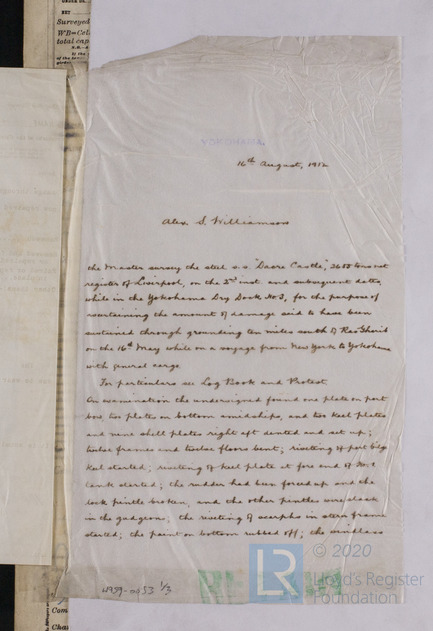 Surveyed
total cap
YOKOHAMA.
16th August, 1912
Alex. S. Williamson
the Master survey the steel s.s. "Dacre Castle," 2600 tons net
register of Liverpool, on the 3rd inst and subsequent dates,
while in the Yokohama Dry Dock No 3, for the purpose of
ascertaining the amount of damage said to have been
sustained through grounding ten miles south of Ras Gharib
on the 16th May while on a voyage from New York to Yokohama
with general cargo.
For particulars see Log Book and Protest
On examination the undersigned found one plate on port
bow, two plates on bottom amidships, and two keel plates
and nine shell plates right aft dented and set up;
twelve frames and twelve floors bent; riveting of port bilge
keel started; riveting of keel plate at fore end of No. 1
tank started; the rudder had been forced up and the
lock pintle broken, and the other pintles were slack
in the gudgeons; the riveting of scarphs in stern frame
started; the paint on bottom rubbed off; the windlass
W959-0053 1/3
LR
© 2020
Lloyd's Register
Foundation
Com
Cha